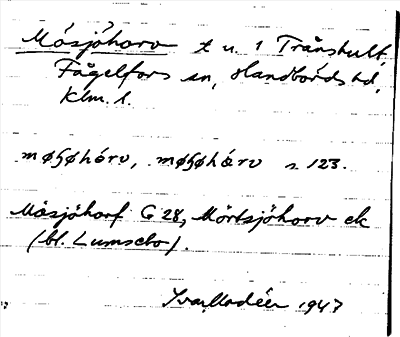 Mósjóhorv t u. 1 Trånshult,
Fågelfors sn, Handbörds hd,
Klm. l.
møʃøhórv, møʃøhårv s 123.
Måsjöharf G 28, Mörtsjöhorv ek
(bl. Lumsebo).
Ivar Modéer 1947